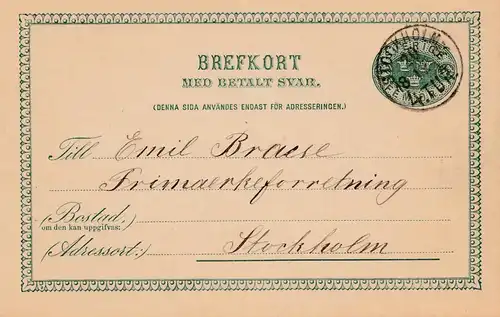 BREFKORT
MED BETALT SVAR.
(DENNA SIDA ANVÄNDES ENDAST FÖR ADRESSERINGEN.)
Till Emil Braese
Frimaerkeforretning
(Bostad,
om den kan uppgifvas:)
(Adressort:) Stockholm
STOCKHOLM